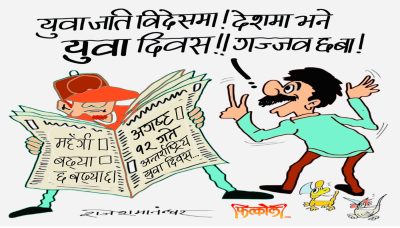 युवाजति विदेसमा! देशमा भने
युवा दिवस!! गज्जव छबा!
महंगी
बढ्या
छ बढ्याछ
अगष्ट
१२ गते
अन्तर्राष्ट्रिय
युवा दिवस...
राजेशमानन्धर
फित्कौली